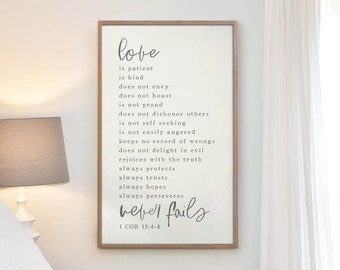 love
is patient
is kind
does not envy
does not boast
is not proud
does not dishonor others
is not self seeking
is not easily angered
keeps no record of wrongs
does not delight in evil
rejoices with the truth
always protects
always trusts
always hopes
always perseveres
never fails
1 COR 13:4-8